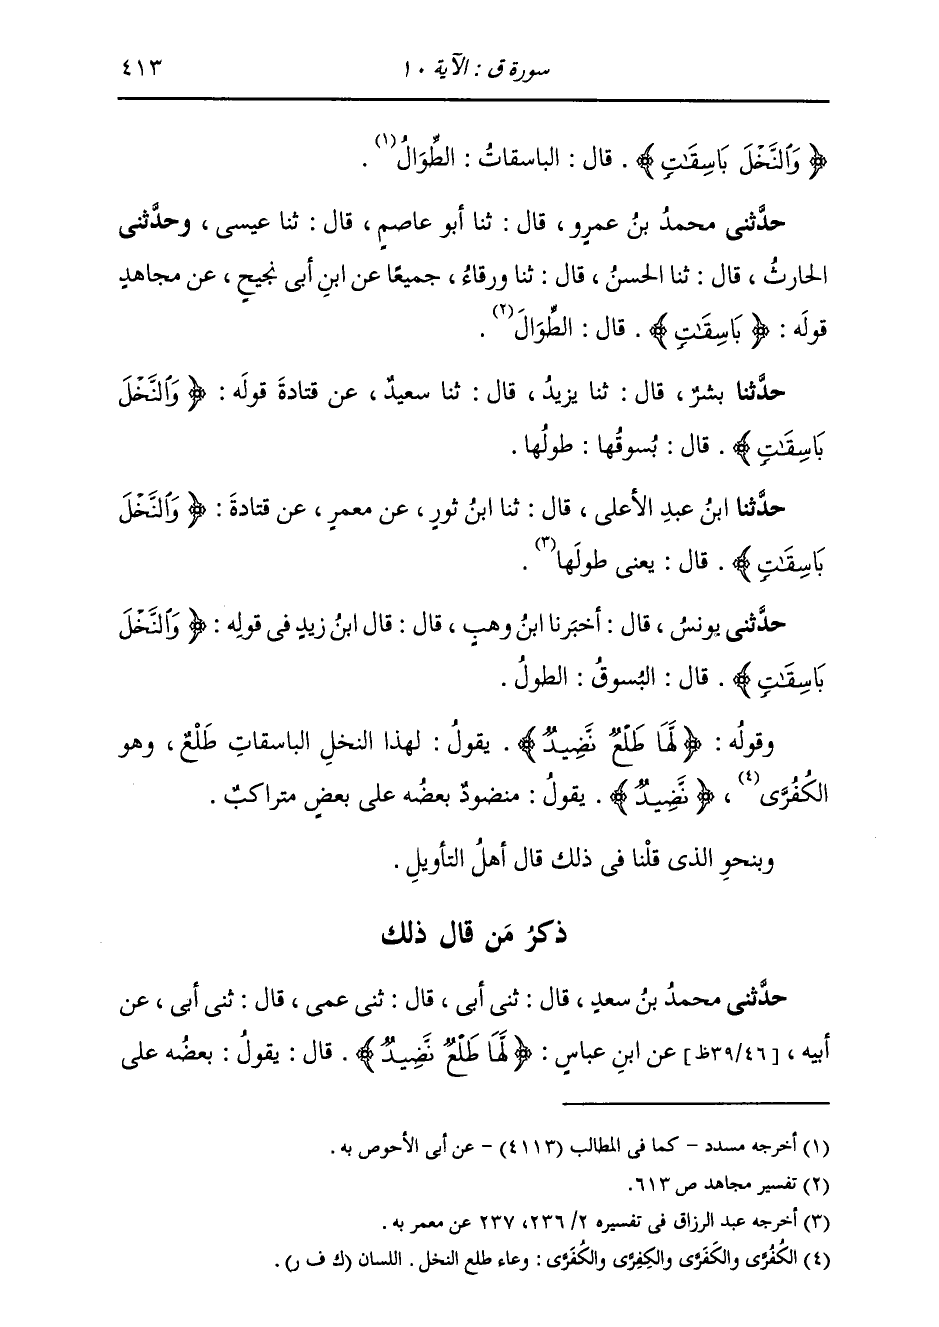 سورة ق : الآية ١٠ ٤١٣
﴿ وَٱلنَّخْلَ بَاسِقَٰتٍ ﴾ . قال : الباسقاتُ : الطِّوَالُ(١) .
حدَّثنى محمدُ بنُ عمرٍو ، قال : ثنا أبو عاصمٍ ، قال : ثنا عيسى ، وحدَّثنى
الحارثُ ، قال : ثنا الحسنُ ، قال : ثنا ورقاءُ ، جميعًا عن ابنِ أبى نجيحٍ ، عن مجاهدٍ
قولَه : ﴿ بَاسِقَٰتٍ ﴾ . قال : الطِّوَالَ(٢) .
حدَّثنا بشرٌ ، قال : ثنا يزيدُ ، قال : ثنا سعيدٌ ، عن قتادةَ قولَه : ﴿ وَٱلنَّخْلَ
بَاسِقَٰتٍ ﴾ . قال : بُسوقُها : طولُها .
حدَّثنا ابنُ عبدِ الأعلى ، قال : ثنا ابنُ ثورٍ ، عن معمرٍ ، عن قتادةَ : ﴿ وَٱلنَّخْلَ
بَاسِقَٰتٍ ﴾ . قال : يعنى طولَها(٣) .
حدَّثنى يونسُ ، قال : أخبَرنا ابنُ وهبٍ ، قال : قال ابنُ زيدٍ فى قولِه : ﴿ وَٱلنَّخْلَ
بَاسِقَٰتٍ ﴾ . قال : البُسوقُ : الطولُ .
وقولُه : ﴿ لَّهَا طَلْعٌ نَّضِيدٌ ﴾ . يقولُ : لهذا النخلِ الباسقاتِ طَلْعٌ ، وهو
الكُفُرَّى(٤) ، ﴿ نَّضِيدٌ ﴾ . يقولُ : منضودٌ بعضُه على بعضٍ متراكبٌ .
وبنحوِ الذى قلْنا فى ذلك قال أهلُ التأويلِ .
ذكرُ مَن قال ذلك
حدَّثنى محمدُ بنُ سعدٍ ، قال : ثنى أبى ، قال : ثنى عمى ، قال : ثنى أبى ، عن
أبيه ، [٣٩/٤٦ظ] عن ابنِ عباسٍ : ﴿ لَّهَا طَلْعٌ نَّضِيدٌ ﴾ . قال : يقولُ : بعضُه على
(١) أخرجه مسدد – كما فى المطالب (٤١١٣) – عن أبى الأحوص به .
(٢) تفسير مجاهد ص ٦١٣.
(٣) أخرجه عبد الرزاق فى تفسيره ٢/ ٢٣٦، ٢٣٧ عن معمر به .
(٤) الكُفُرَّى والكَفَرَّى والكِفِرَّى والكُفَرَّى : وعاء طلع النخل . اللسان (ك ف ر) .